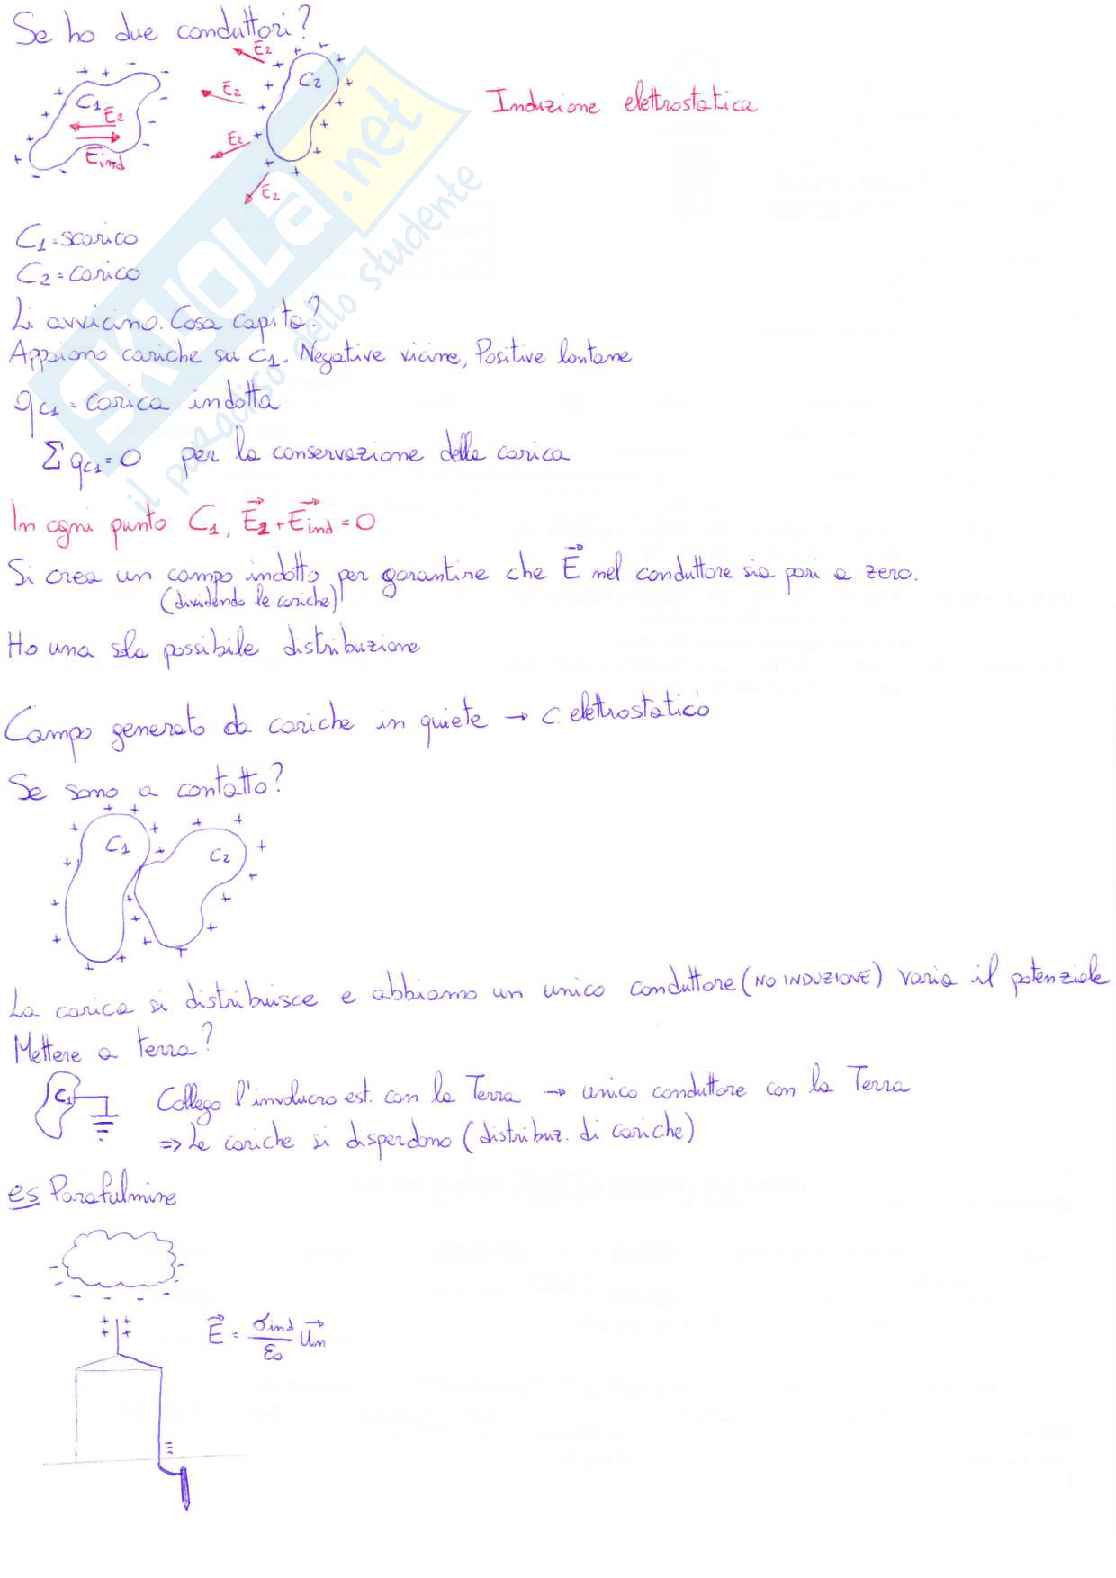 Se ho due conduttori?
Induzione elettrostatica
C1
E2
Eind
C2
E2
E2
E2
E2
C1=scarico
C2=carico
Li avvicino. Cosa capita?
Appaiono cariche su C1. Negative vicine, Positive lontane
qC1=carica indotta
ΣqC1=0 per la conservazione della carica
In ogni punto C1, E2+Eind=0
Si crea un campo indotto per garantire che E nel conduttore sia pari a zero.
(dividendo le cariche)
Ho una sola possibile distribuzione
Campo generato da cariche in quiete → C. elettrostatico
Se sono a contatto?
C1
C2
La carica si distribuisce e abbiamo un unico conduttore (NO INDUZIONE) varia il potenziale
Mettere a terra?
C1
Collego l'involucro est. con la Terra → unico conduttore con la Terra
⇒ Le cariche si disperdono (distribuz. di cariche)
es Parafulmine
E = σind/ε0 un
SKUOLA.net
il paradiso dello studente